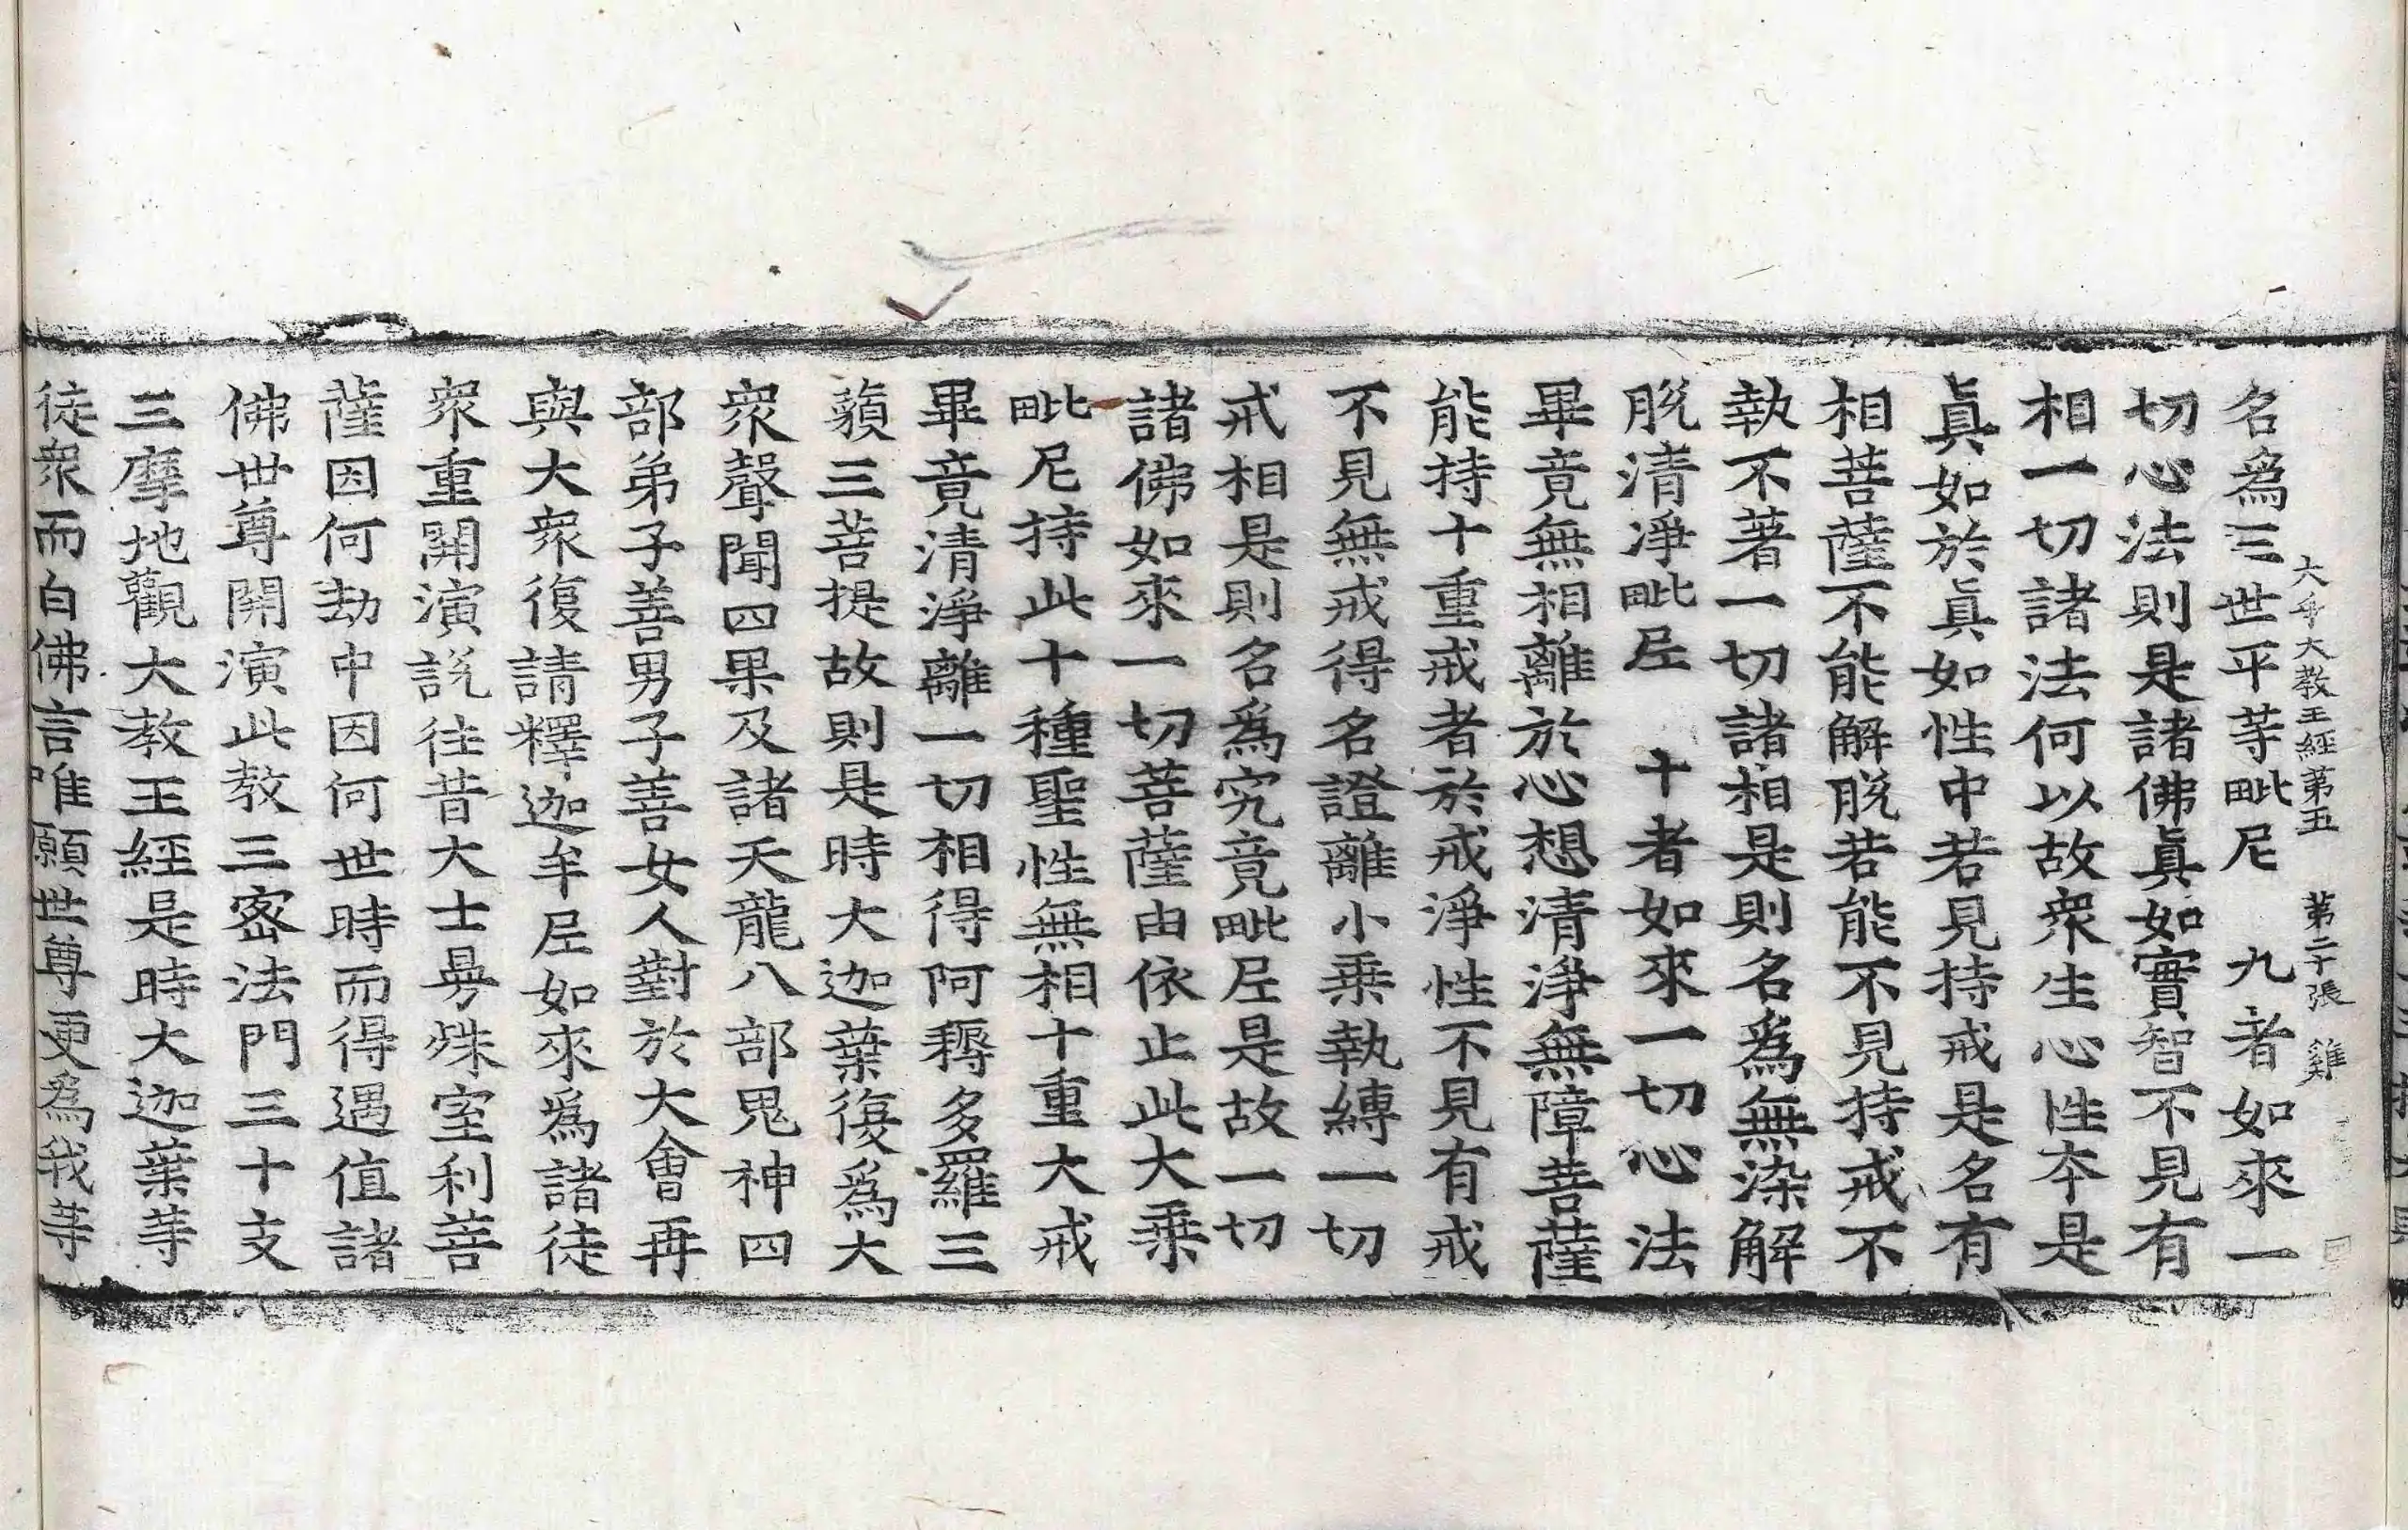 大乎大教王經第五 第二十張 雞
名爲三世平等毗尼 九者如來一
切心法則是諸佛眞如實智不見有
相一切諸法何以故衆生心性夲是
眞如於眞如性中若見持戒是名有
相菩薩不能解脫若能不見持戒不
執不著一切諸相是則名爲無染解
脫清淨毗𡰱 十者如來一切心法
畢竟無相離於心想清淨無障菩薩
能持十重戒者於戒淨性不見有戒
不見無戒得名證離小乗執縛一切
戒相是則名爲究竟毗𡰱是故一切
諸佛如來一切菩薩由依止此大乗
毗尼持此十種聖性無相十重大戒
畢竟清淨離一切相得阿耨多羅三
藐三菩提故則是時大迦葉復爲大
衆聲聞四果及諸天龍八部鬼神四
部弟子善男子善女人對於大會再
與大衆復請釋迦牟𡰱如來爲諸徒
衆重開演說往昔大士曼殊室利菩
薩因何劫中因何世時而得遇值諸
佛世尊開演此教三密法門三十支
三摩地觀大教王經是時大迦葉䓁
徒衆而白佛言唯願世尊更爲我䓁